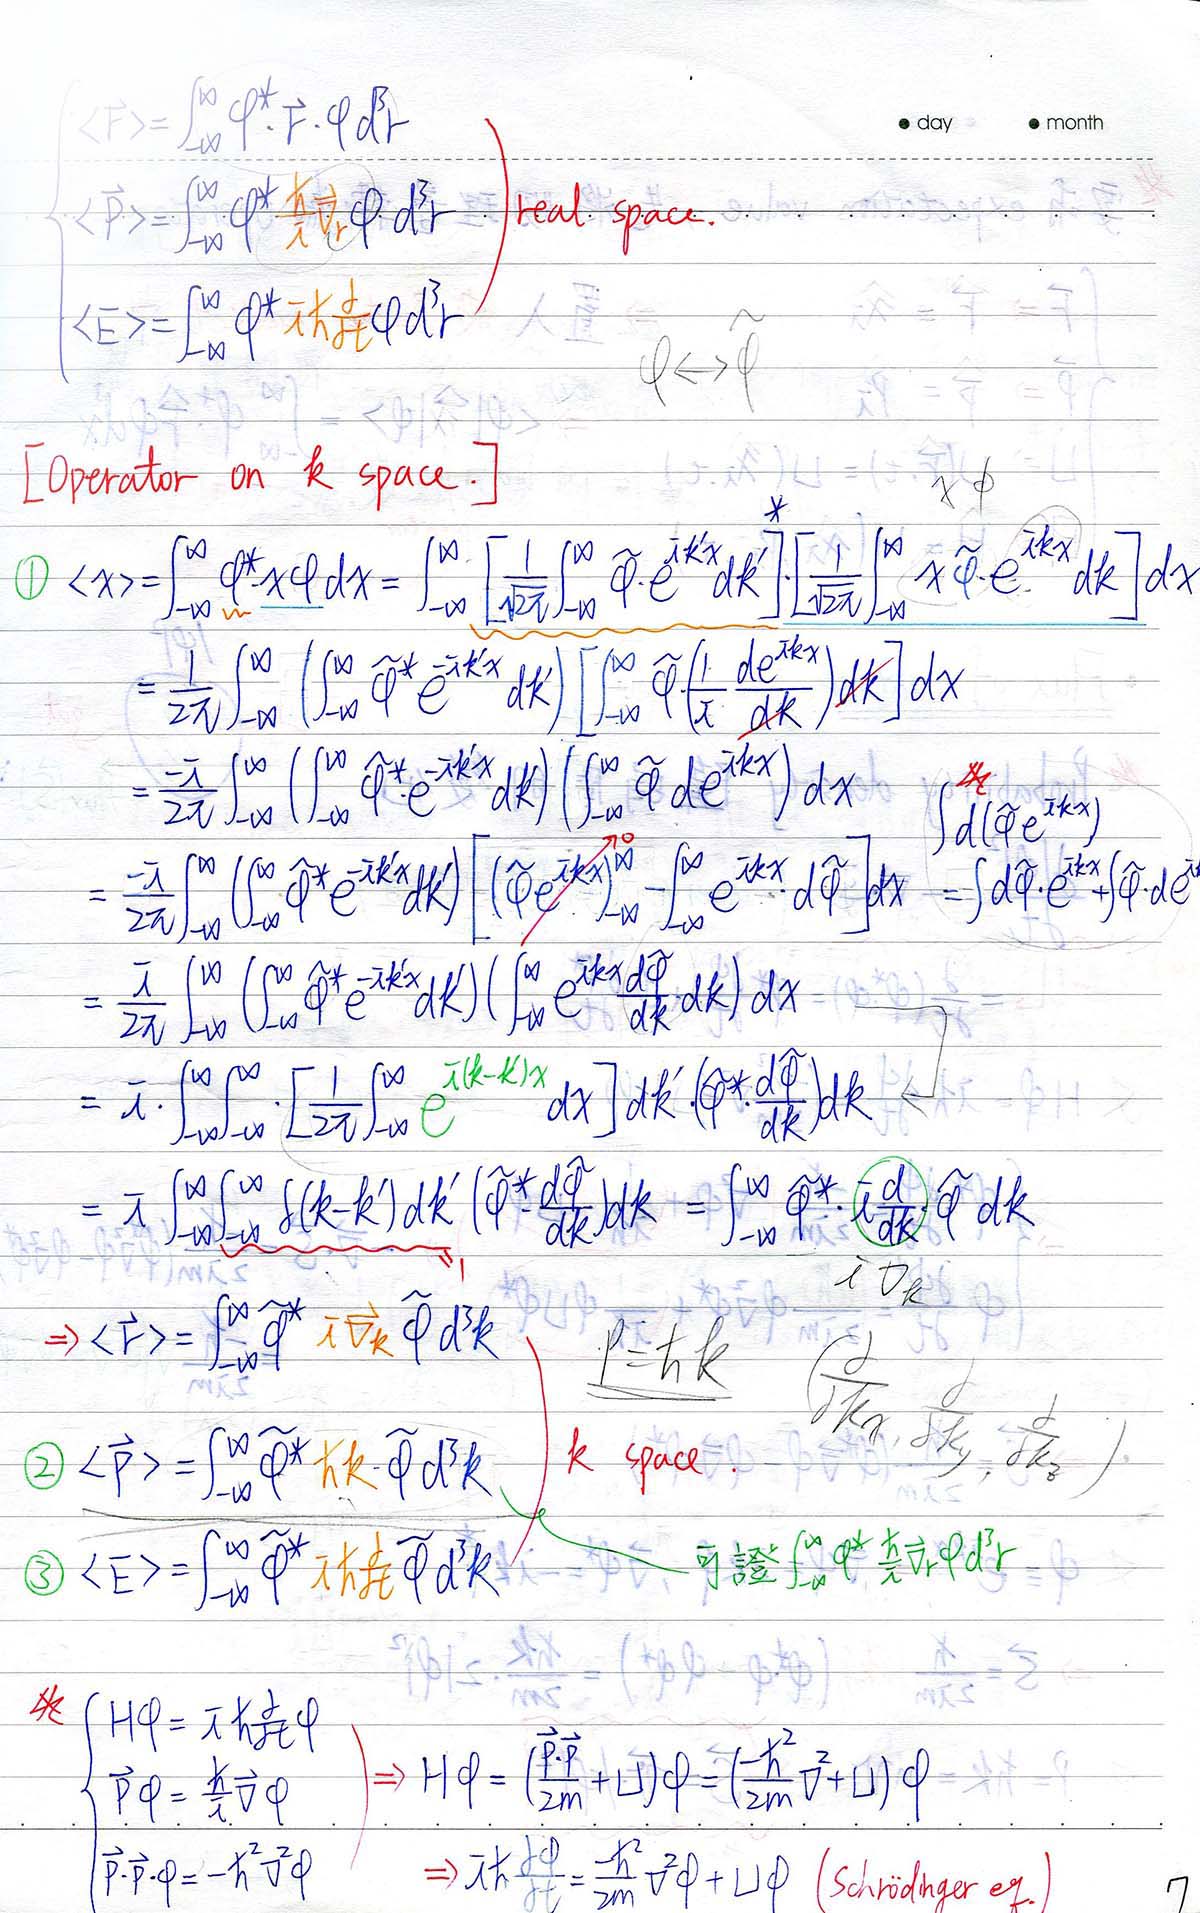 • day • month
<r⃗> = ∫_{-∞}^{∞} φ* · r⃗ · φ d³r
<p⃗> = ∫_{-∞}^{∞} φ* ħ/i ∇⃗_r φ · d³r
real space.
<E> = ∫_{-∞}^{∞} φ* iħ ∂/∂t φ d³r
φ ↔ φ̃
[Operator on k space.]
x φ
① <x> = ∫_{-∞}^{∞} φ* · xφ dx = ∫_{-∞}^{∞} [1/√2π ∫_{-∞}^{∞} φ̃ · e^{ik'x} dk']* · [1/√2π ∫_{-∞}^{∞} x φ̃ · e^{ikx} dk] dx
= 1/2π ∫_{-∞}^{∞} (∫_{-∞}^{∞} φ̃* e^{-ik'x} dk') [∫_{-∞}^{∞} φ̃ · (1/i de^{ikx}/dk) dk] dx
= -i/2π ∫_{-∞}^{∞} (∫_{-∞}^{∞} φ̃* · e^{-ik'x} dk') (∫_{-∞}^{∞} φ̃ de^{ikx}) dx
∫d(φ̃ e^{ikx})
= -i/2π ∫_{-∞}^{∞} (∫_{-∞}^{∞} φ̃* e^{-ik'x} dk') [(φ̃ e^{ikx})_{-∞}^{∞} → 0 - ∫_{-∞}^{∞} e^{ikx} · dφ̃] dx
= ∫dφ̃ · e^{ikx} + ∫φ̃ · de^{i
= i/2π ∫_{-∞}^{∞} (∫_{-∞}^{∞} φ̃* e^{-ik'x} dk') (∫_{-∞}^{∞} e^{ikx} dφ̃/dk · dk) dx
= i · ∫_{-∞}^{∞} ∫_{-∞}^{∞} · [1/2π ∫_{-∞}^{∞} e^{i(k-k')x} dx] dk' · (φ̃* · dφ̃/dk) dk
= i ∫_{-∞}^{∞} ∫_{-∞}^{∞} δ(k-k') dk' (φ̃* · dφ̃/dk) dk = ∫_{-∞}^{∞} φ̃* · i d/dk · φ̃ dk
1
i ∇_k
⇒ <r⃗> = ∫_{-∞}^{∞} φ̃* i∇⃗_k φ̃ d³k
p = ħk
(∂/∂k_x, ∂/∂k_y, ∂/∂k_z)
② <p⃗> = ∫_{-∞}^{∞} φ̃* ħk · φ̃ d³k
k space.
③ <E> = ∫_{-∞}^{∞} φ̃* iħ ∂/∂t φ̃ d³k
可證 ∫_{-∞}^{∞} φ* ħ/i ∇⃗_r φ d³r
Hφ = iħ ∂/∂t φ
p⃗φ = ħ/i ∇φ
⇒ Hφ = (p⃗·p⃗/2m + U)φ = (-ħ²/2m ∇² + U) φ
p⃗·p⃗·φ = -ħ²∇²φ
⇒ iħ ∂φ/∂t = -ħ²/2m ∇²φ + Uφ (Schrödinger eq.)
7